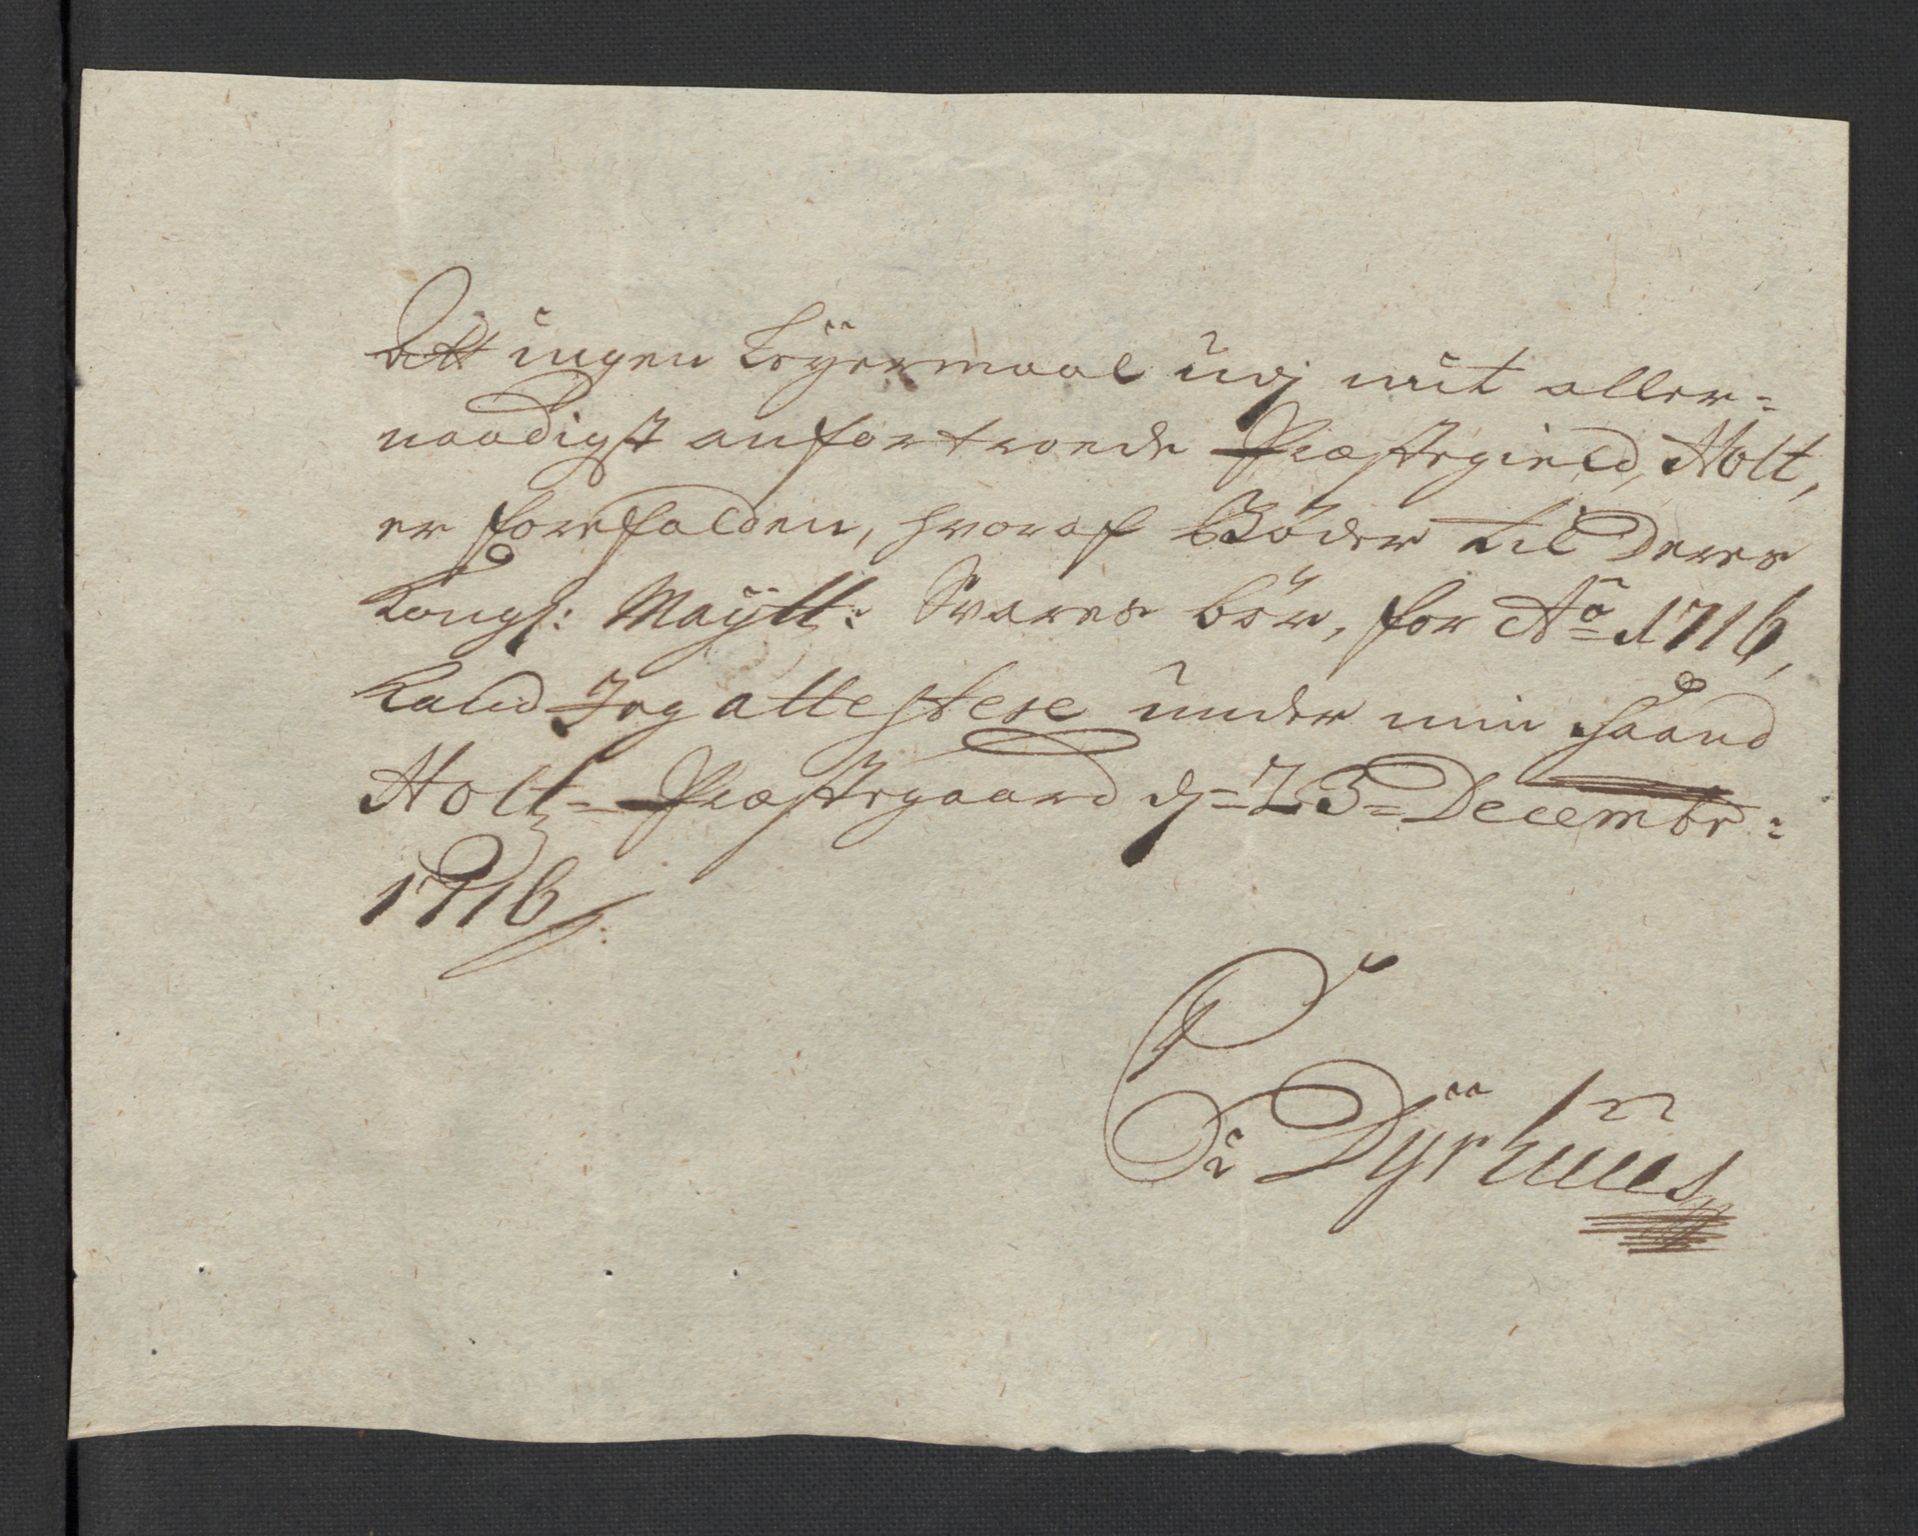 Att ingen Leÿermaal udj mit aller-
naadigst anfortroede Præstegield, Holt,
er forefalden, hvoraf Bøder til Deres
Kongl: Maÿtt: Svares bør, for Aō 1716,
Kand Jeg attestere under min Haand
Holt- Præstegaard dj- 23= Decembr:
1716
P Dÿrhuus